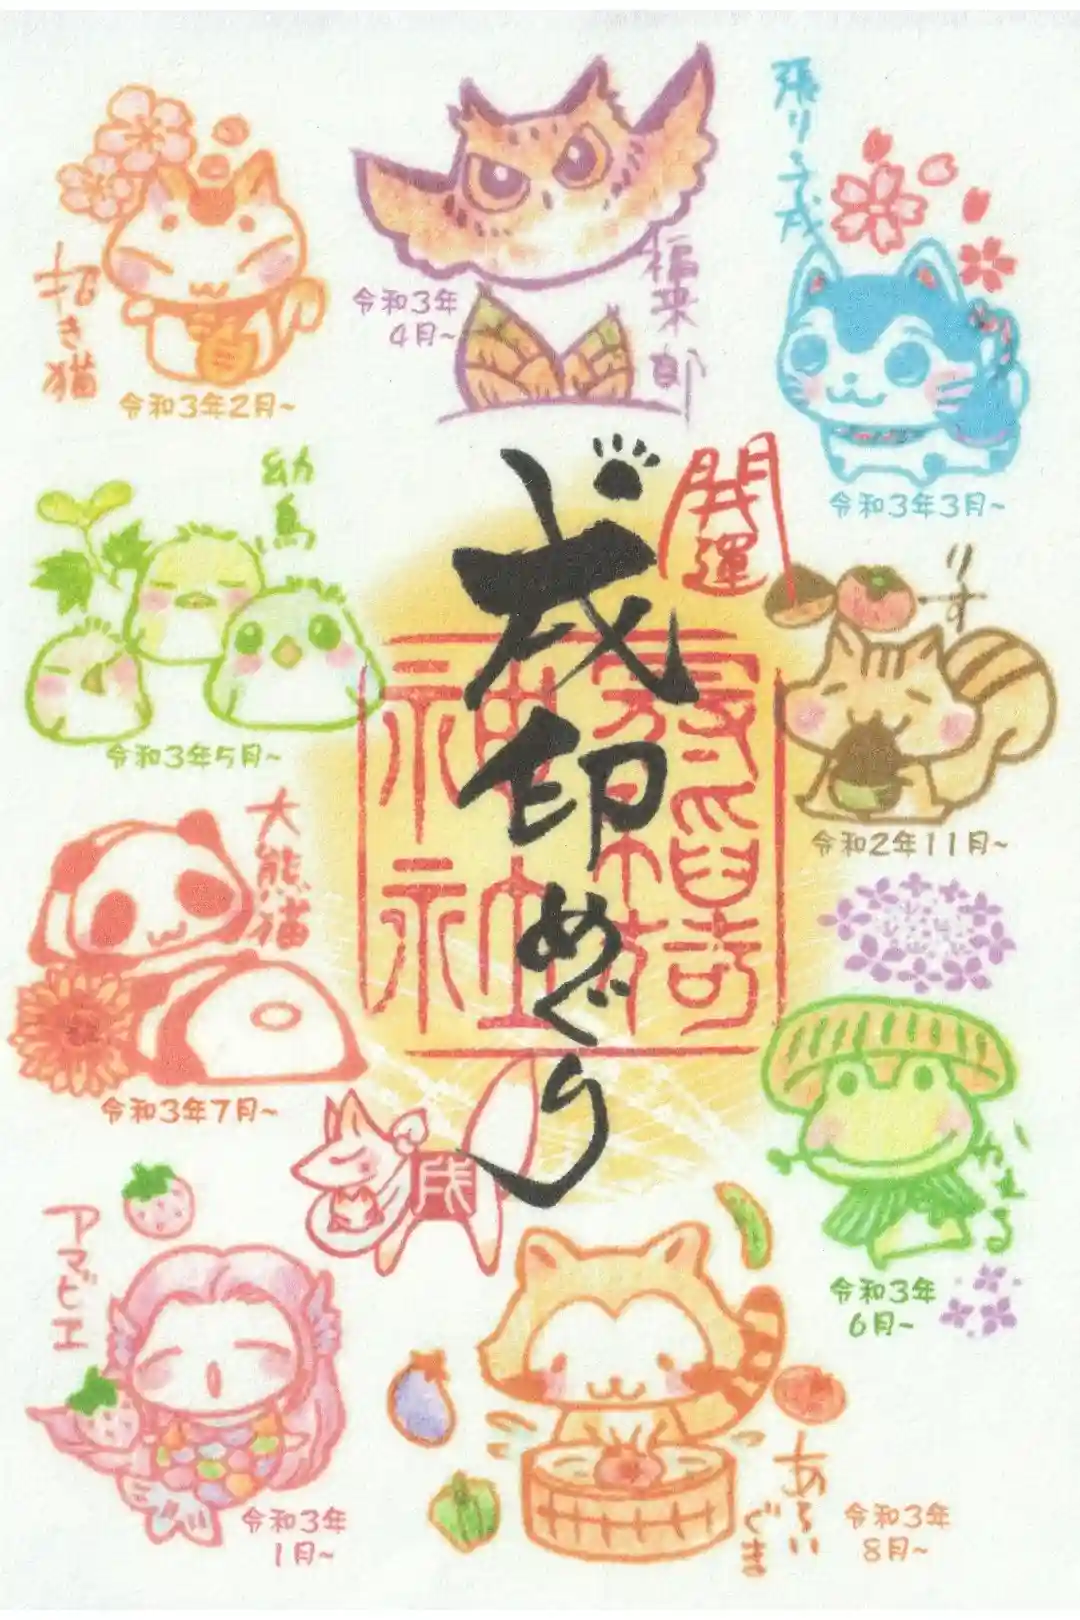 招き猫
令和3年2月~
福来郎
令和3年
4月~
張り子戌
令和3年3月~
幼鳥
令和3年5月~
開運
戌印めぐり
神社
りす
令和2年11月~
大熊猫
令和3年7月~
戌
かえる
令和3年
6月~
アマビエ
令和3年
1月~
あらいぐま
令和3年
8月~